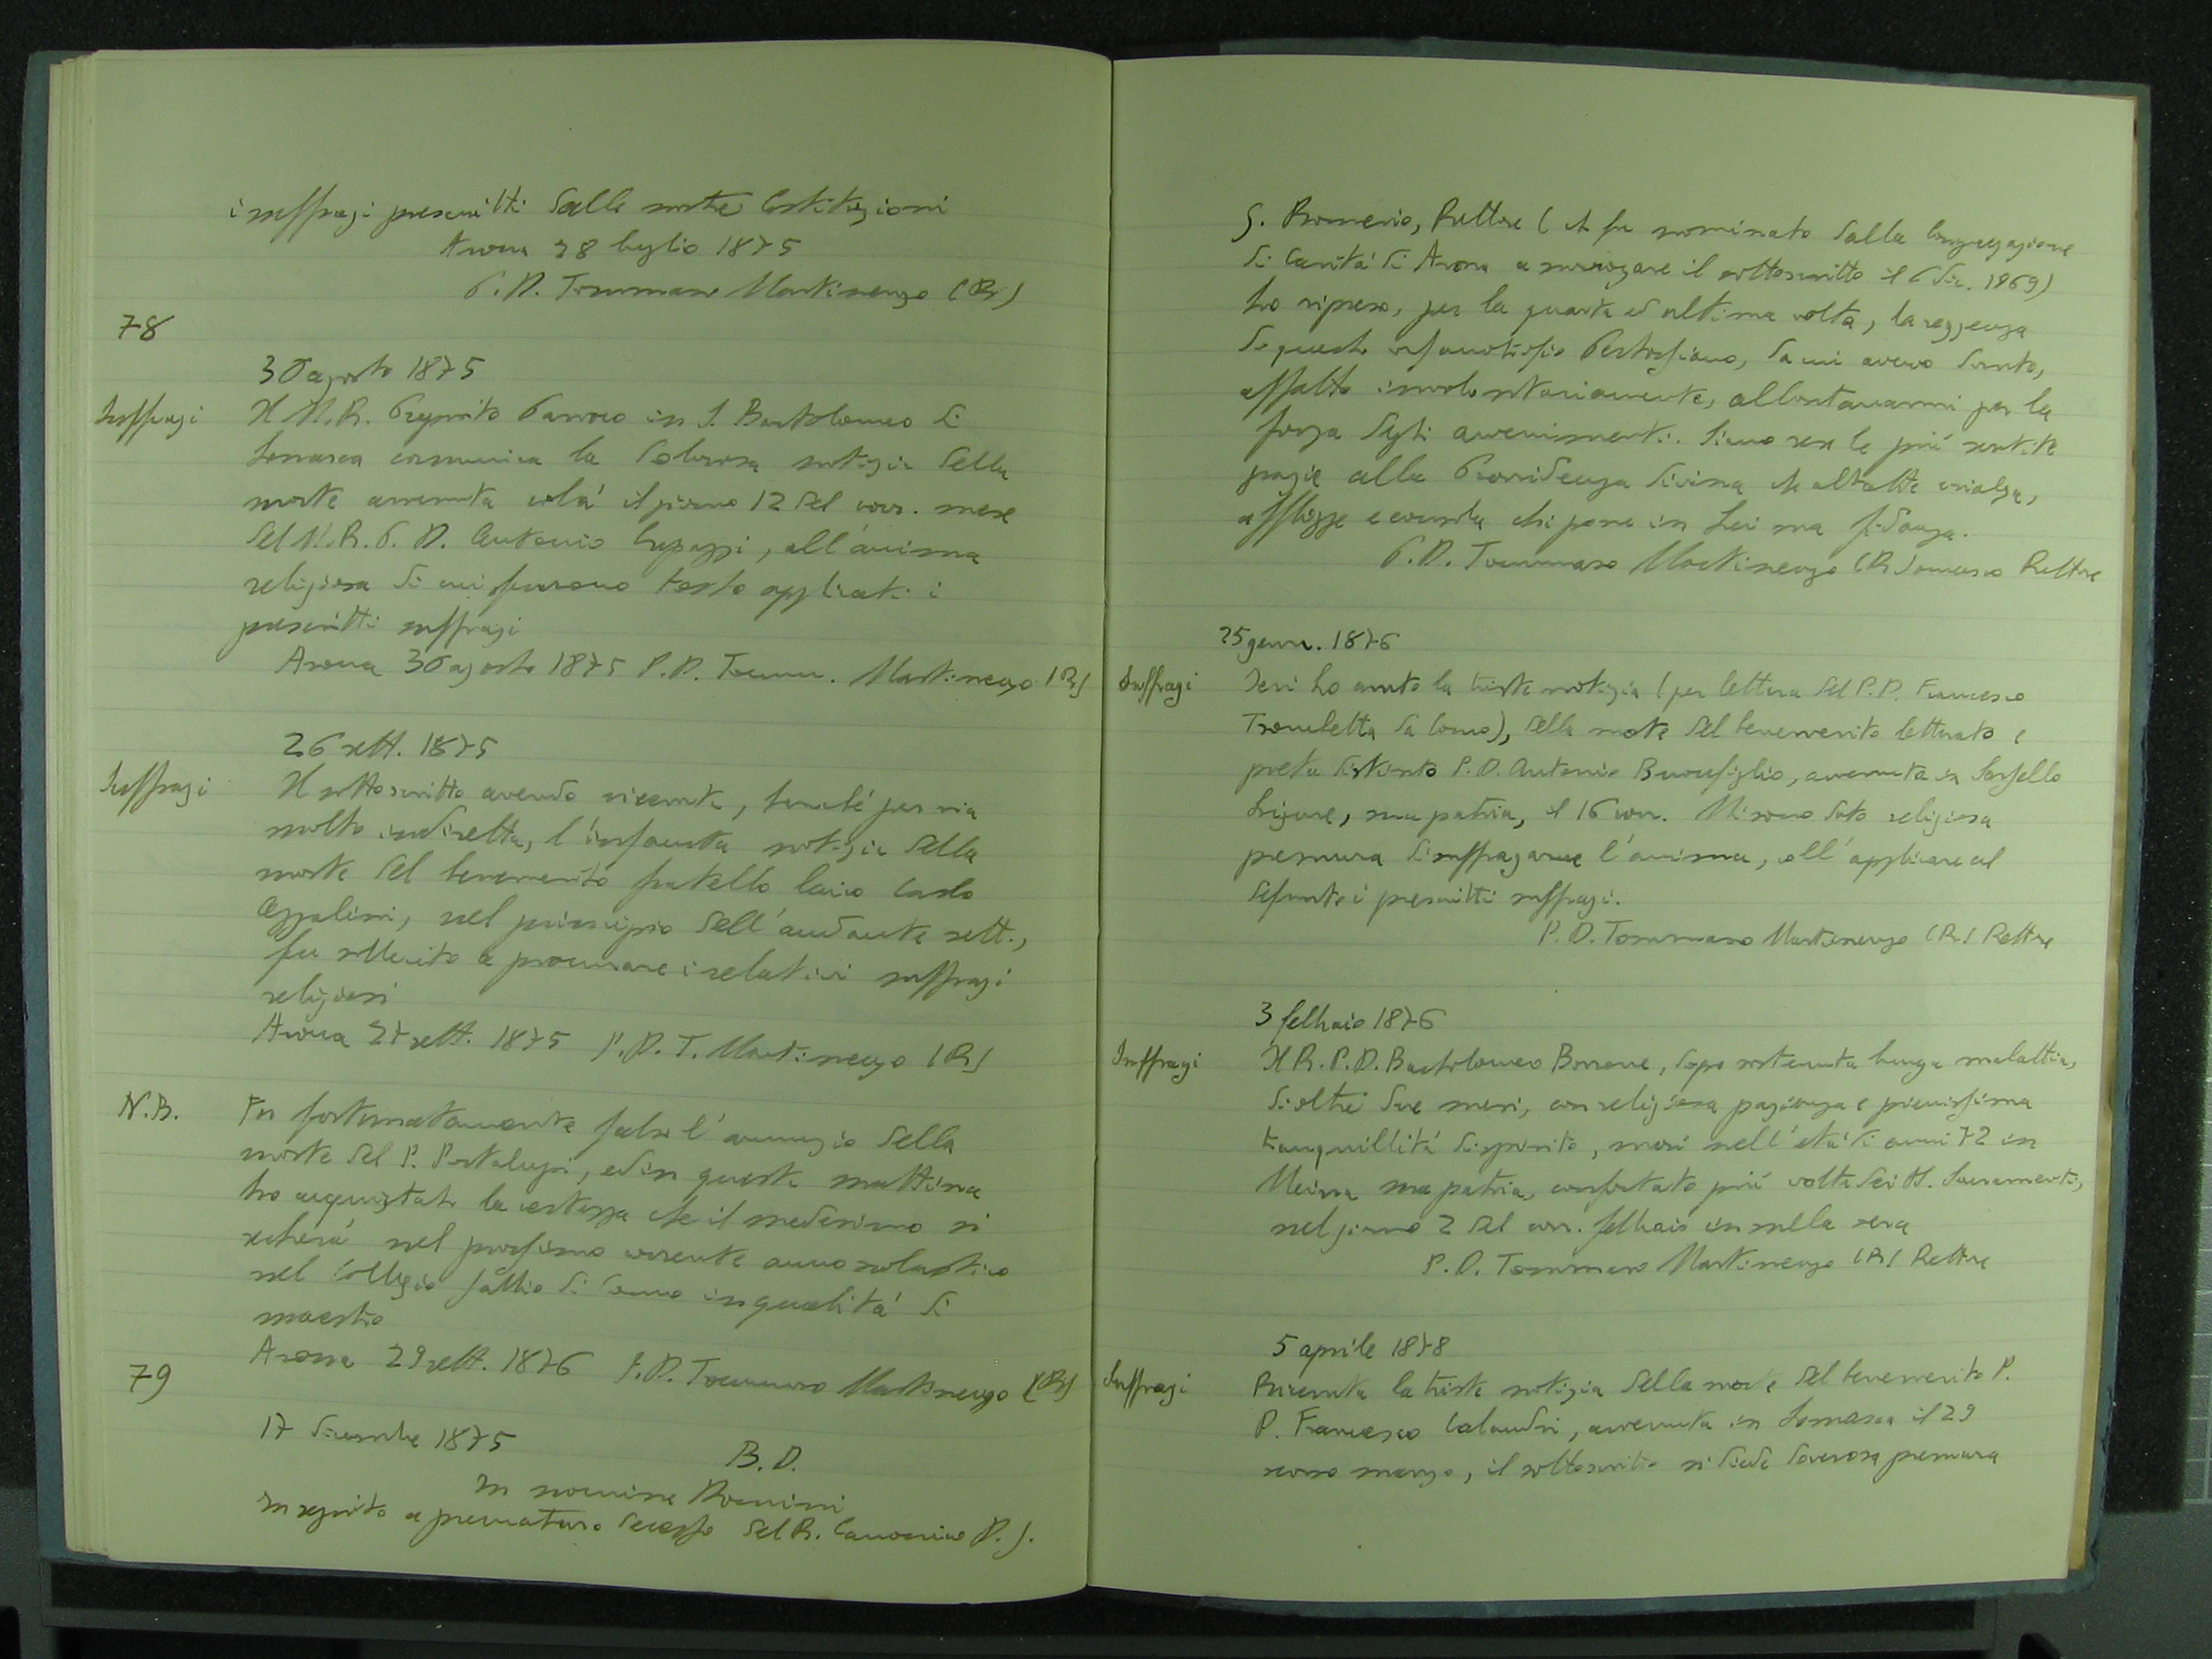 i suffragi prescritti dalle nostre Costituzioni
Arona 28 luglio 1875
P. D. Tommaso Martinengo (R)
78
30 agosto 1875
Suffragi
Il M. R. Preposito Parroco in S. Bartolomeo di
Somasca comunica la dolorosa notizia della
morte avvenuta colà il giorno 12 del corr. mese
del M. R. P. D. Antonio, all'anima
religiosa di cui furono tosto applicati i
prescritti suffragi
Arona 30 agosto 1875 P. D. Tomm. Martinengo (R)
26 sett. 1875
Suffragi
Il sottoscritto avendo ricevuta, benché per via
molto indiretta, l'infausta notizia della
morte del benemerito fratello laico Carlo
Azzalini, nel principio dell'andante sett.,
fu sollecito a procurare i relativi suffragi
religiosi
Arona 27 sett. 1875 P. D. T. Martinengo (R)
N.B.
Fu fortunatamente falso l'annuncio della
morte del P. Portalupi, ed in questa mattina
ho acquistato la certezza che il medesimo si
recherà nel prossimo corrente anno scolastico
nel Collegio Gallio di Como in qualità di
maestro
Arona 29 sett. 1876 P. D. Tommaso Martinengo (R)
79
17 dicembre 1875
B. D.
In nomine Domini
In seguito a prematuro decesso del R. Canonico D. G.
G. Bromerio, Rettore (che fu nominato dalla Congregazione
di Carità di Arona a surrogare il sottoscritto il 6 dic. 1869)
ho ripreso, per la quarta ed ultima volta, la reggenza
di questo orfanotrofio, da cui avevo dovuto,
affatto involontariamente, allontanarmi per la
forza degli avvenimenti. Siano rese le più sentite
grazie alla Provvidenza divina che abbatte e rialza,
affligge e consola chi pone in Lei sua fidanza.
P. D. Tommaso Martinengo (R) Somasco Rettore
25 genn. 1876
Suffragi
Ieri ho avuto la triste notizia (per lettera del P. D. Francesco
Trombetta da Como), della morte del benemerito letterato e
poeta distinto P. D. Antonio Buonfiglio, avvenuta in Sassello
Ligure, sua patria, il 16 corr. Mi sono dato religiosa
premura di suffragarne l'anima, coll'applicare al
defunto i prescritti suffragi.
P. D. Tommaso Martinengo (R) Rettore
3 febbraio 1876
Suffragi
Il R. P. D. Bartolomeo Borrone, dopo sostenuta lunga malattia,
di oltre due mesi, con religiosa pazienza e pienissima
tranquillità di spirito, morì nell'età di anni 72 in
Meina sua patria, confortato più volte dei SS. Sacramenti,
nel giorno 2 del corr. febbraio in sulla sera
P. D. Tommaso Martinengo (R) Rettore
5 aprile 1878
Suffragi
Ricevuta la triste notizia della morte del benemerito P.
D. Francesco Calandri, avvenuta in Somasca il 29
scorso marzo, il sottoscritto si diede doverosa premura